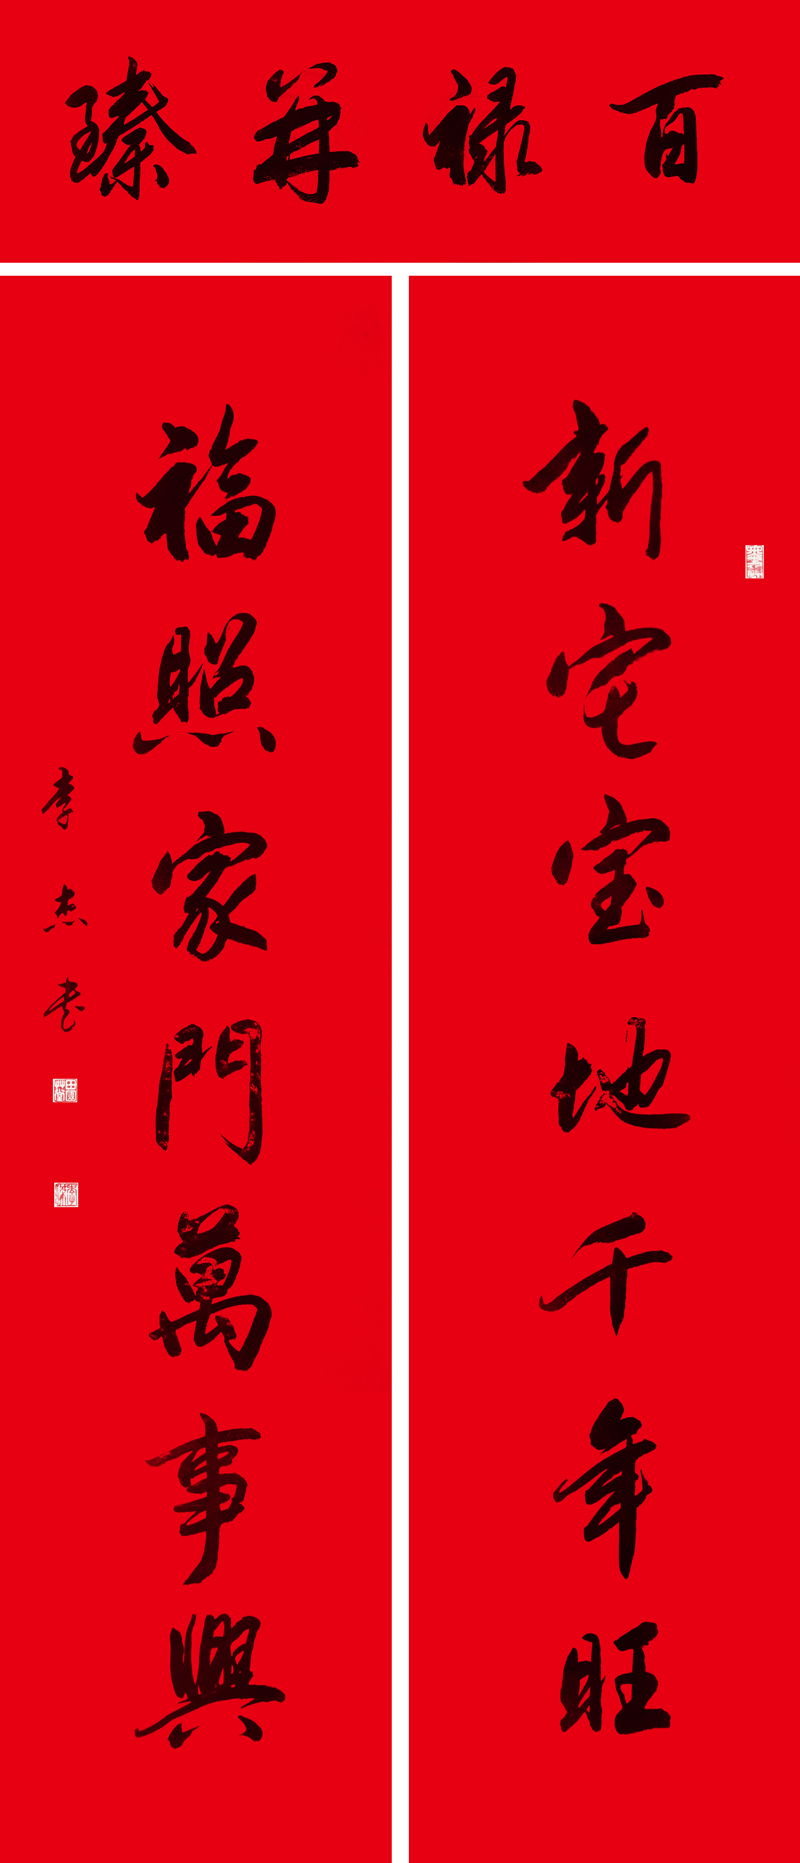 百禄并臻
新宅宝地千年旺
福照家門萬事興
李杰书